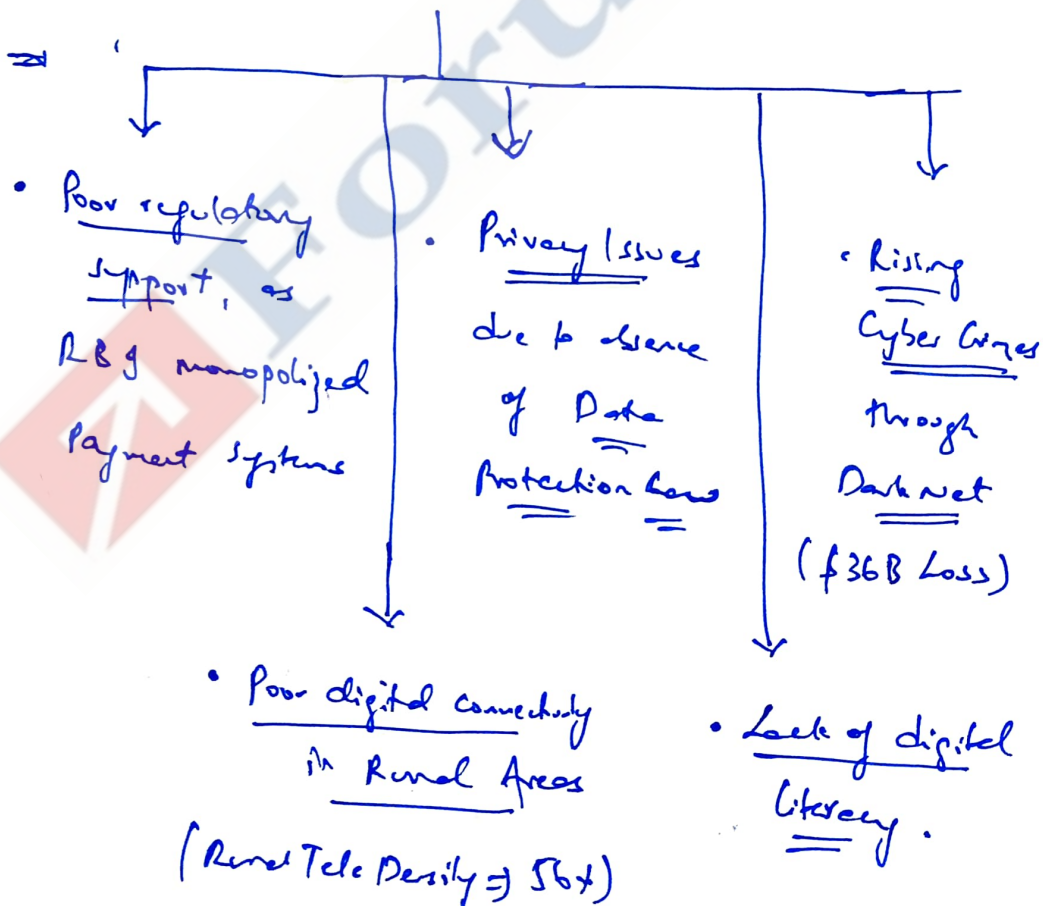 • Poor regulatory
support, as
RBI monopolized
Payment systems
• Privacy Issues
due to absence
of Data
Protection Laws
• Rising
Cyber Crimes
through
Dark net
($36B Loss)
• Poor digital connectivity
in Rural Areas
(Rural Tele Density ⇒ 56%)
• Lack of digital
literacy.
Foru